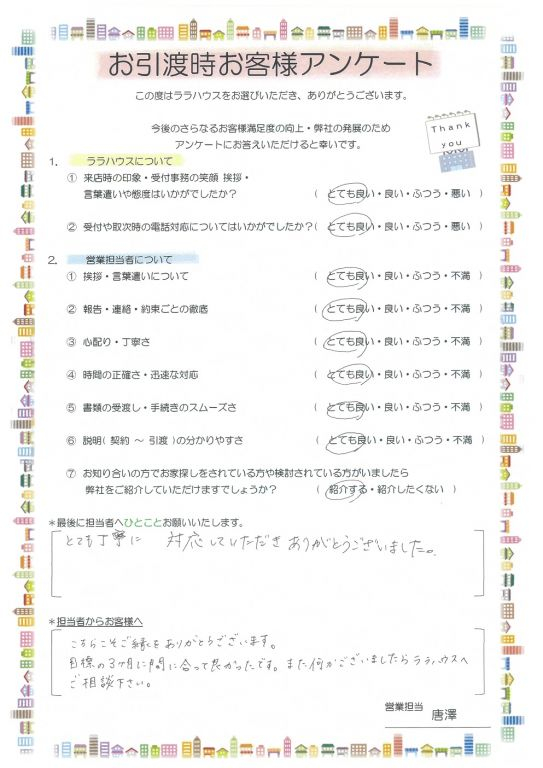 お引渡時お客様アンケート
この度はララハウスをお選びいただき、ありがとうございます。
今後のさらなるお客様満足度の向上・弊社の発展のため
アンケートにお答えいただけると幸いです。
Thank
you
1. ララハウスについて
① 来店時の印象・受付事務の笑顔 挨拶・
言葉遣いや態度はいかがでしたか? ( とても良い・良い・ふつう・悪い )
② 受付や取次時の電話対応についてはいかがでしたか? ( とても良い・良い・ふつう・悪い )
2. 営業担当者について
① 挨拶・言葉遣いについて ( とても良い・良い・ふつう・不満 )
② 報告・連絡・約束ごとの徹底 ( とても良い・良い・ふつう・不満 )
③ 心配り・丁寧さ ( とても良い・良い・ふつう・不満 )
④ 時間の正確さ・迅速な対応 ( とても良い・良い・ふつう・不満 )
⑤ 書類の受渡し・手続きのスムーズさ ( とても良い・良い・ふつう・不満 )
⑥ 説明( 契約 ～ 引渡 )の分かりやすさ ( とても良い・良い・ふつう・不満 )
⑦ お知り合いの方でお家探しをされている方や検討されている方がいましたら
弊社をご紹介していただけますでしょうか? ( 紹介する・紹介したくない )
*最後に担当者へひとことお願いいたします。
とても丁寧に 対応していただきありがとうございました。
*担当者からお客様へ
こちらこそご縁をありがとうございます。
目標の3ヶ月に間に合って良かったです。また何かございましたらララハウスへ
ご相談下さい。
営業担当 唐澤